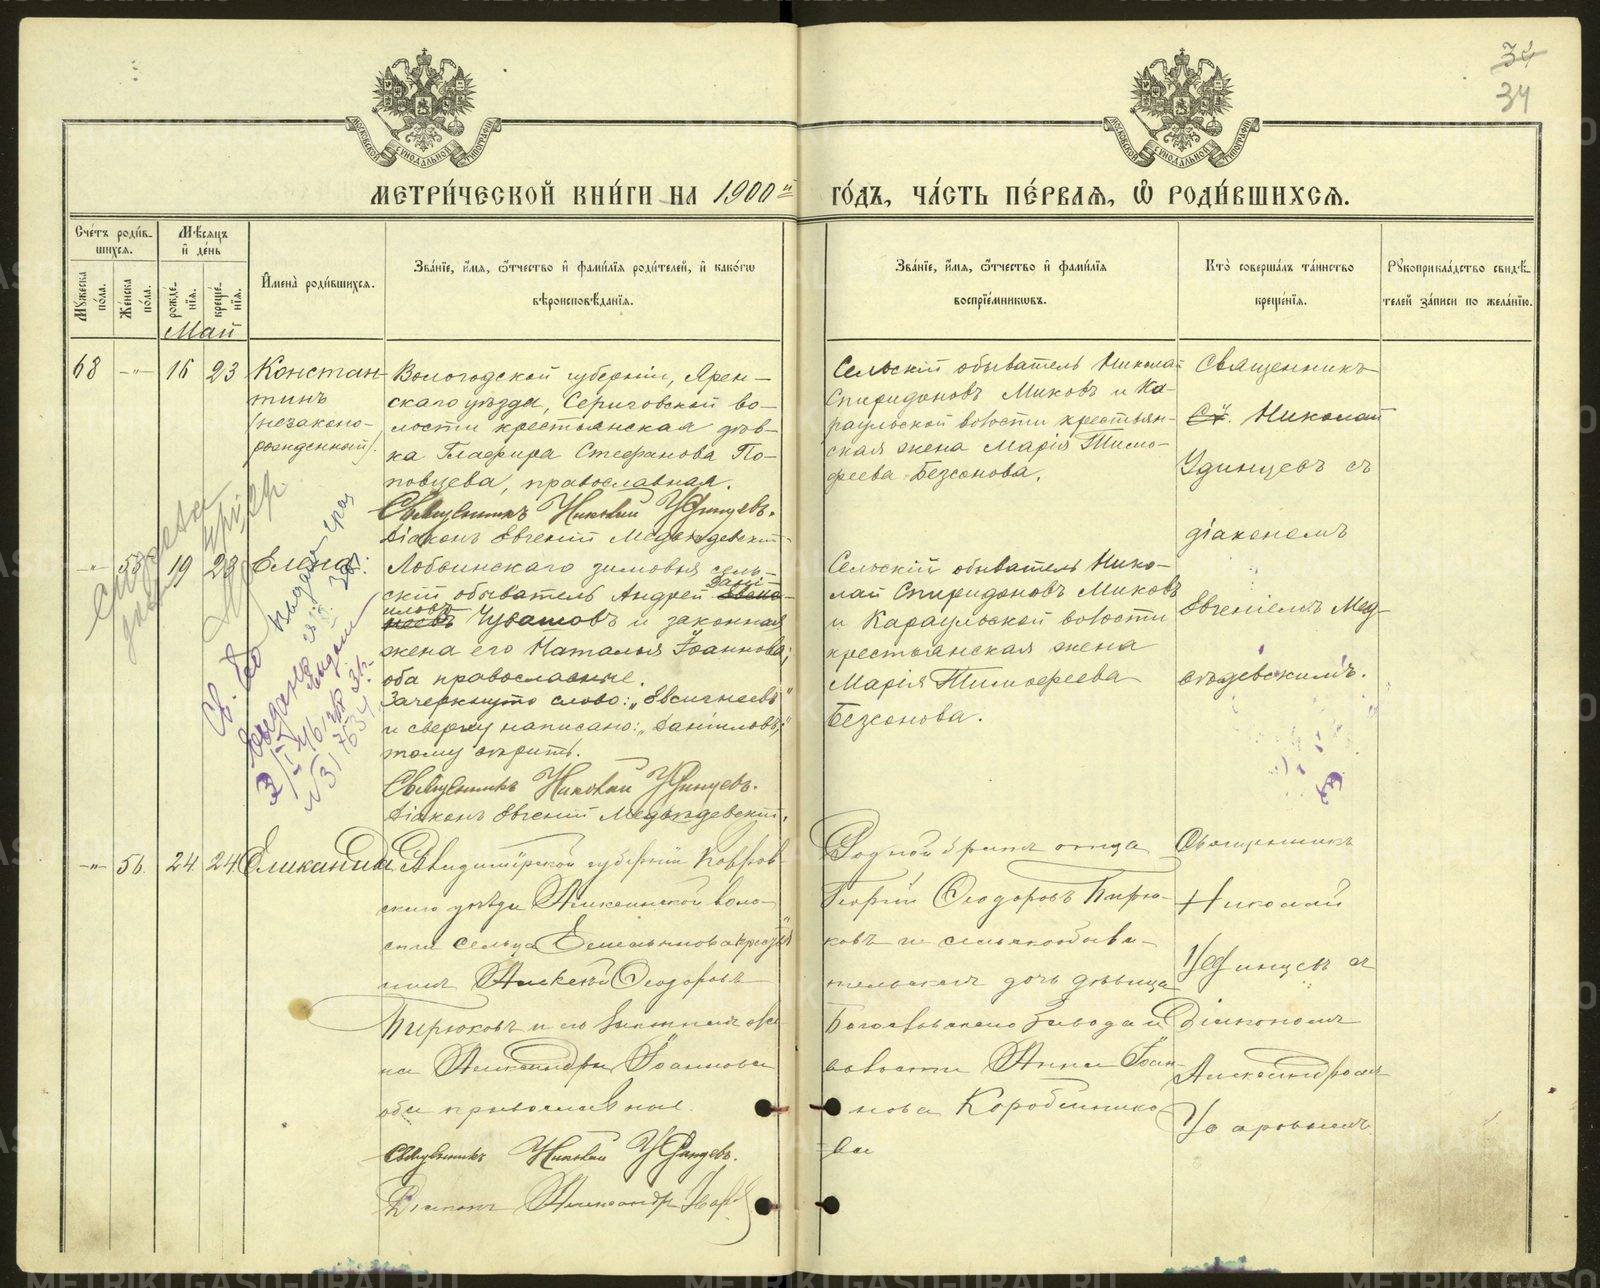 34
34
МОСКОВСКОЙ СѴНОДАЛЬНОЙ ТИПОГРАФІИ
МОСКОВСКОЙ СѴНОДАЛЬНОЙ ТИПОГРАФІИ
МЕТРИ́ЧЕСКОЙ КНИ́ГИ НА 1900й ГО́ДЪ, ЧА́СТЬ ПЕ́РВАѦ, Ѽ РОДИ́ВШИХСѦ.
Сче́тъ роди́в-
шихсѧ.
Мꙋ́жеска по́ла.
Же́нска по́ла.
Мѣ́сѧцъ
и҆ де́нь
рожде́-нїѧ.
креще́-нїѧ.
И҆мена̀ роди́вшихсѧ.
Зва́нїе, и҆́мѧ, ѻ҆́тчество и҆ фами́лїѧ роди́телей, и҆ како́гѡ
вѣроисповѣ́данїѧ.
Зва́нїе, и҆́мѧ, ѻ҆́тчество и҆ фами́лїѧ
воспрїе́мникѡвъ.
Кто̀ соверша́лъ та́инство
креще́нїѧ.
Рꙋкоприкла́дство свидѣ́-
телей за́писи по жела́нїю.
Май
68 -"- 16 23
Констан-
тинъ
(незаконо-
рожденный).
Вологодской губерніи, Ярен-
скаго уѣзда, Сериговской во-
лости крестьянская дѣв-
ка Глафира Стефанова По-
повцева, православная.
Священникъ Николай Удинцевъ.
Діаконъ Евгеній Медвѣдевскій.
Сельскій обыватель Николай
Спиридоновъ Миковъ и Ка-
раульской волости крестьян-
ская жена Марія Тимо-
феева Безсонова.
Священникъ
Николай
Удинцевъ съ
діакономъ
Евгеніемъ Мед-
вѣдевскимъ.
-"- 55 19 23 Елена
Лобвинскаго зимовья сель-
скій обыватель Андрей
Дані-
иловъ
Чувашовъ и законная
жена его Наталья Іоаннова,
оба православные.
Зачеркнуто слово: „Евсигнеевъ"
и сверху написано: „Даніиловъ",
тому вѣрить.
Священникъ Николай Удинцевъ.
Діаконъ Евгеній Медвѣдевскій.
Сельскій обыватель Нико-
лай Спиридоновъ Миковъ
и Караульской волости
крестьянская жена
Марія Тимофеева
Безсонова.
-"- 56. 24. 24.
Владимірской губерніи Ковров-
скаго уѣзда Алексинской воло-
сти сельца Емельянова крестья
нинъ Алексѣй Ѳеодоровъ
Бирюковъ и его законная же-
на Александра Іоаннова
оба православные.
Священникъ Николай Удинцевъ.
Діаконъ Александръ
Родной братъ отца
Георгій Ѳеодоровъ Бирю-
ковъ и сельскообыва-
тельская дочь дѣвица
Богословскаго завода и
волости Анна Іоан-
нова Коробейнико-
ва
Священникъ
Николай
Удинцевъ съ
Діакономъ
Александромъ